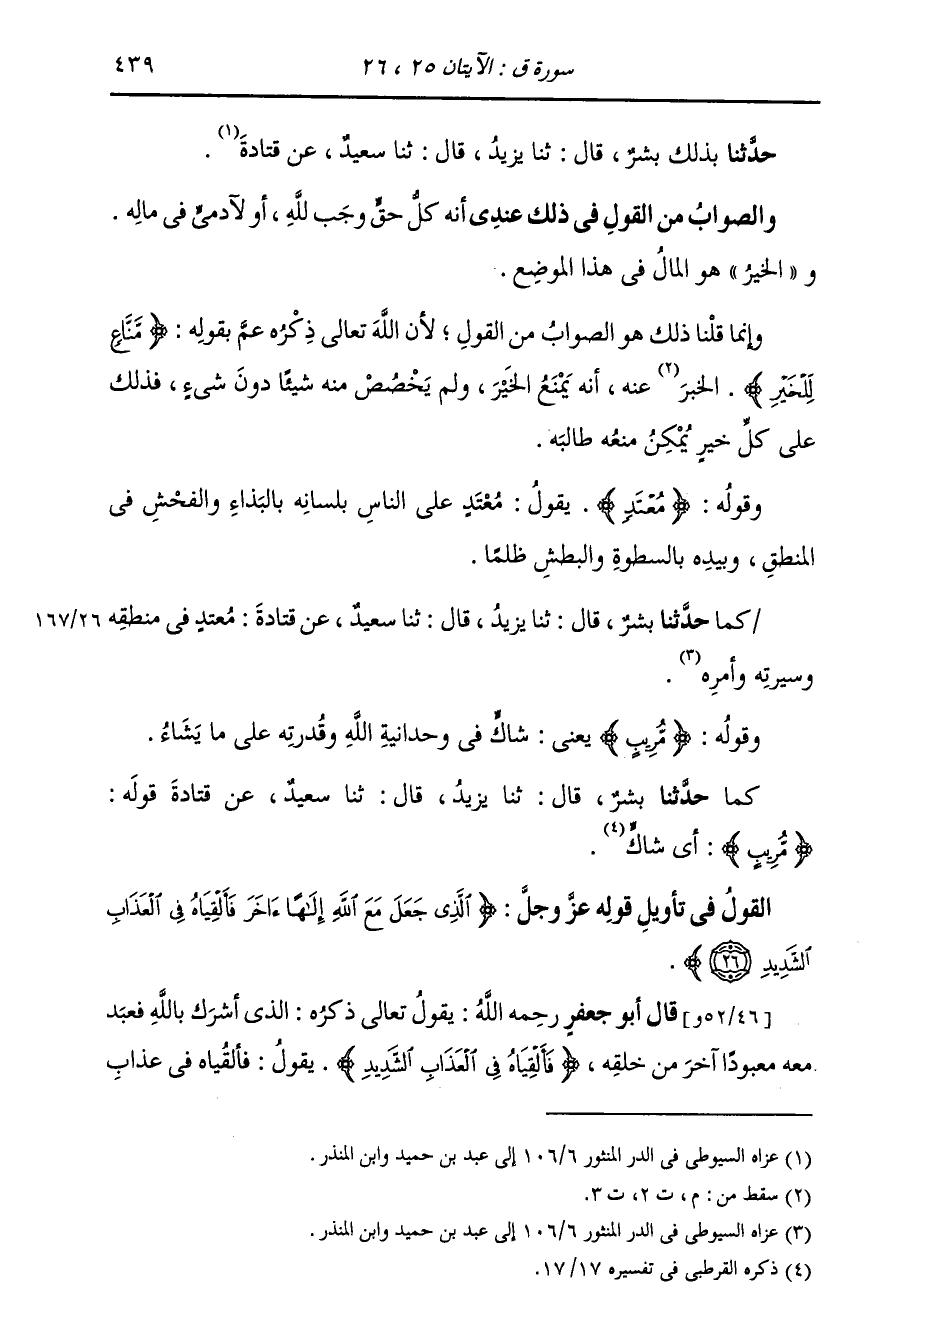 سورة ق : الآيتان ٢٥ ، ٢٦ ٤٣٩
حدَّثنا بذلك بشرٌ ، قال : ثنا يزيدُ ، قال : ثنا سعيدٌ ، عن قتادةَ(١) .
والصوابُ من القولِ فى ذلك عندِى أنه كلُّ حقٍّ وجَب للَّهِ ، أو لآدمىٍّ فى مالِه .
و « الخيرُ » هو المالُ فى هذا الموضِع .
وإنما قلْنا ذلك هو الصوابُ من القولِ ؛ لأن اللَّهَ تعالى ذِكْرُه عمَّ بقولِه : ﴿ مَّنَّاعٍ
لِّلْخَيْرِ ﴾ . الخبرَ(٢) عنه ، أنه يَمْنَعُ الخَيْرَ ، ولم يَخْصُصْ منه شيئًا دونَ شىءٍ ، فذلك
على كلِّ خيرٍ يُمْكِنُ منعُه طالبَه .
وقولُه : ﴿ مُعْتَدٍ ﴾ . يقولُ : مُعْتَدٍ على الناسِ بلسانِه بالبَذاءِ والفحْشِ فى
المنطقِ ، وبيدِه بالسطوةِ والبطشِ ظلمًا .
/كما حدَّثنا بشرٌ ، قال : ثنا يزيدُ ، قال : ثنا سعيدٌ ، عن قتادةَ : مُعتدٍ فى منطقِه ١٦٧/٢٦
وسيرتِه وأمرِه(٣) .
وقولُه : ﴿ مُّرِيبٍ ﴾ يعنى : شاكٌّ فى وحدانيةِ اللَّهِ وقُدرتِه على ما يَشَاءُ .
كما حدَّثنا بشرٌ ، قال : ثنا يزيدُ ، قال : ثنا سعيدٌ ، عن قتادةَ قولَه :
﴿ مُّرِيبٍ ﴾ : أى شاكٌّ(٤) .
القولُ فى تأويلِ قولِه عزَّ وجلَّ : ﴿ ٱلَّذِى جَعَلَ مَعَ ٱللَّهِ إِلَـٰهًا ءَاخَرَ فَأَلْقِيَاهُ فِى ٱلْعَذَابِ
ٱلشَّدِيدِ ٢٦ ﴾ .
[٥٢/٤٦و] قال أبو جعفرٍ رحِمه اللَّهُ : يقولُ تعالى ذكرُه : الذى أشرَك باللَّهِ فعبَد
معه معبودًا آخرَ من خلقِه ، ﴿ فَأَلْقِيَاهُ فِى ٱلْعَذَابِ ٱلشَّدِيدِ ﴾ . يقولُ : فألقُياه فى عذابِ
(١) عزاه السيوطى فى الدر المنثور ١٠٦/٦ إلى عبد بن حميد وابن المنذر .
(٢) سقط من : م ، ت ٢، ت ٣.
(٣) عزاه السيوطى فى الدر المنثور ١٠٦/٦ إلى عبد بن حميد وابن المنذر .
(٤) ذكره القرطبى فى تفسيره ١٧/١٧.